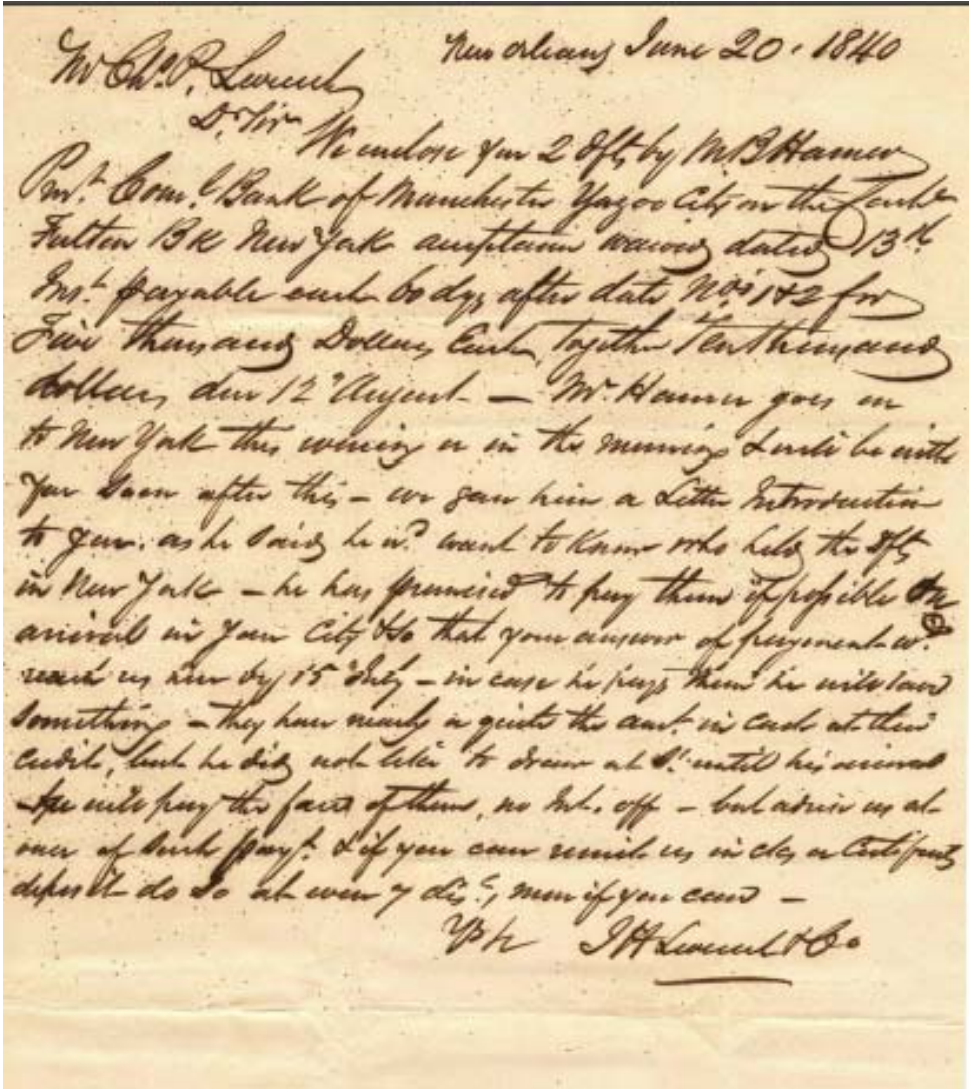 New Orleans June 20. 1840
Mr Chs. P. Leverich
Dr Sir
We enclose you 2 Dfts by M. B. Hamer
Prest. Coml. Bank of Manchester Yazoo City on the
Fulton Bk New York acceptance waived dated 13th
Inst. payable each 60 dys after date Nos 1 & 2 for
Five thousand Dollars Each, Together Ten thousand
dollars due 12 August — Mr. Hamer goes on
to New York this evening or in the morning & will be with
you soon after this – we gave him a Letter Introduction
to you. as he said he wd. want to know who held the Dfts
in New York – he has promised to pay them if possible on
arrival in your City & so that your answer of payment wd.
reach us here by 15 July – in case he pays them he will save
something – they have nearly or quite the amt. in cash at their
credit, but he did not like to draw at St. until his arrival
he will pay the face of them, no Int. off – but advise us at
once of such payt. & if you can remit us in cks or Certificates
deposit do so at even 7 dis., more if you can –
Yrs J H Leverich & Co